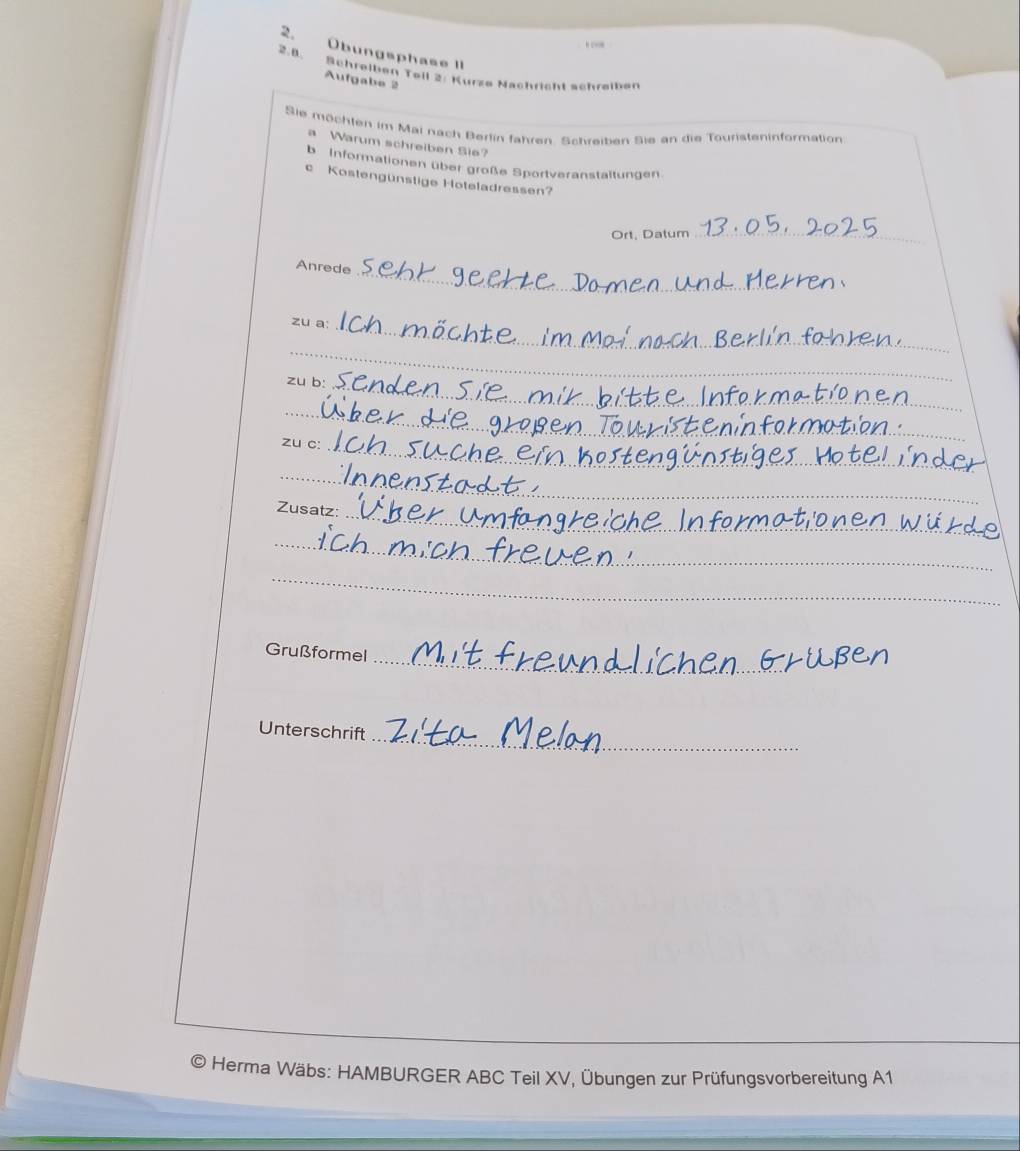 2. Übungsphase II
2.8. Schreiben Teil 2: Kurze Nachricht schreiben
Aufgabe 2
Sie möchten im Mai nach Berlin fahren. Schreiben Sie an die Touristeninformation
a Warum schreiben Sie?
b Informationen über große Sportveranstaltungen.
c Kostengünstige Hoteladressen?
Ort, Datum 13.05, 2025
Anrede Sehr geerte Damen und Herren.
zu a: Ich möchte im Mai nach Berlin fahren.
zu b: Senden Sie mir bitte Informationen
über die großen Touristeninformation.
zu c: Ich suche ein kostengünstiges Hotel in der
Innenstadt,
Zusatz: Über umfangreiche Informationen würde
ich mich freuen!
Grußformel Mit freundlichen Grüßen
Unterschrift Zita Melan
© Herma Wäbs: HAMBURGER ABC Teil XV, Übungen zur Prüfungsvorbereitung A1